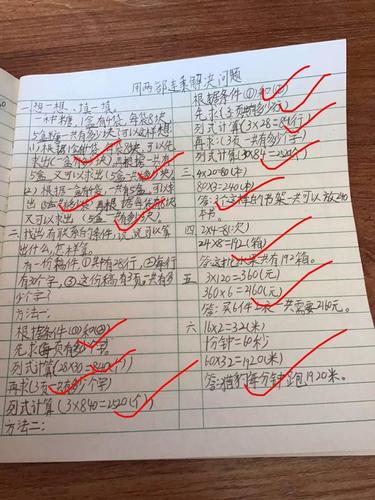 用两步连乘解决问题
一、想一想,填一填。
一种糖,1盒有4袋,每袋8块,
5盒糖一共有多少块?可以这样想:
(1)根据1盒有4袋,每袋8块,可以先
求出(1盒有多少块),再根据一共有
5盒,又可以求出(5盒一共有多少块)。
(2)根据一盒有4袋,一共有5盒,可以
又可以求出(5盒一共有多少块)。
二、找出有联系的条件,说说可以算
出什么,怎样算。
有一份稿件,①其中有28行,②每行
有30个字,③这份稿有3页。共有多
少个字?
方法一:
根据条件(①)和(②)
先求(每页有多少个字)。
列式计算(28×30=840(个))
再求(3页一共有多少个字)
列式计算(3×840=2520(个))
方法二:
根据条件(①)和(③)
先求(3页有多少行)
列式计算(3×28=84(行))
再求(3页一共有多少个字)
列式计算(30×84=2520(个))
三、4×20=80(本)
80×3=240(本)
答:3个这样的书架一共可以放240
本书。
四、2×4=8(次)
24×8=192(箱)
192箱。
五、3×120=360(元)
360×6=2160(元)
一共需要2160元。
六、16×2=32(米)
1分钟=60秒
60×32=1920(米)
答:猎豹每分钟跑1920米。